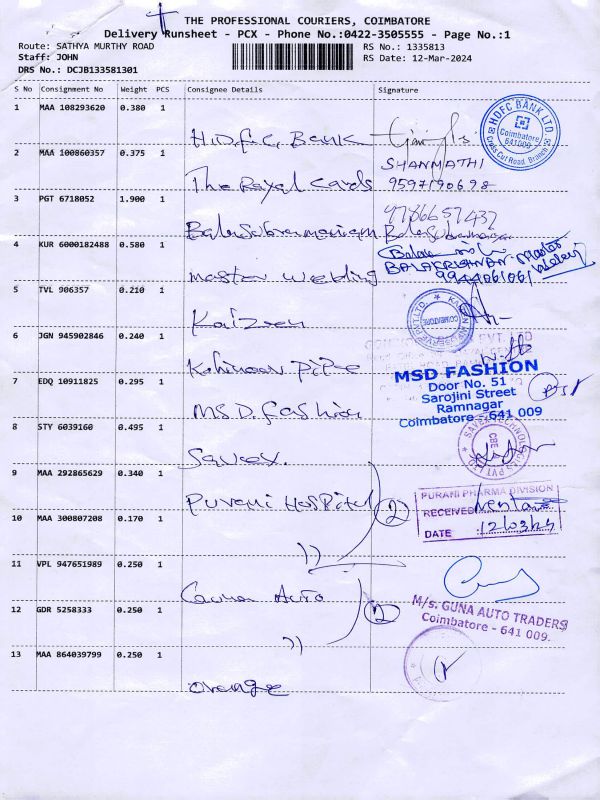 THE PROFESSIONAL COURIERS, COIMBATORE
Delivery Runsheet - PCX - Phone No.:0422-3505555 - Page No.:1
Route: SATHYA MURTHY ROAD
Staff: JOHN
DRS No.: DCJB133581301
RS No.: 1335813
RS Date: 12-Mar-2024
S No Consignment No Weight PCS Consignee Details Signature
1 MAA 108293620 0.380 1
H.D.F.C. Bank
HDFC BANK LTD.
Coimbatore
641 009
Cross Cut Road, Branch
2 MAA 100860357 0.375 1
The Royal Cards
SHANMATHI
9597190698
3 PGT 6718052 1.900 1
Balasubramaniam
9786657437
Balasubramaniam
4 KUR 6000182488 0.580 1
master wedding
BALAKRISHNAN
5 TVL 906357 0.210 1
Kaizen
COIMBATORE
6 JGN 945902846 0.240 1
Kohinoor Pipe
7 EDQ 10911825 0.295 1
M.S.D. Fashion
MSD FASHION
Door No. 51
Sarojini Street
Ramnagar
Coimbatore - 641 009
8 STY 6039160 0.495 1
Savex.
SAVEX TECHNOLOGIES PVT LTD
CBE
9 MAA 292865629 0.340 1
Purani Hospital
2
PURANI PHARMA DIVISION
RECEIVED
DATE 12/03/24
10 MAA 300807208 0.170 1
))
11 VPL 947651989 0.250 1
Guna Auto
2
M/s. GUNA AUTO TRADERS
Coimbatore - 641 009.
12 GDR 5258333 0.250 1
))
13 MAA 864039799 0.250 1
orange